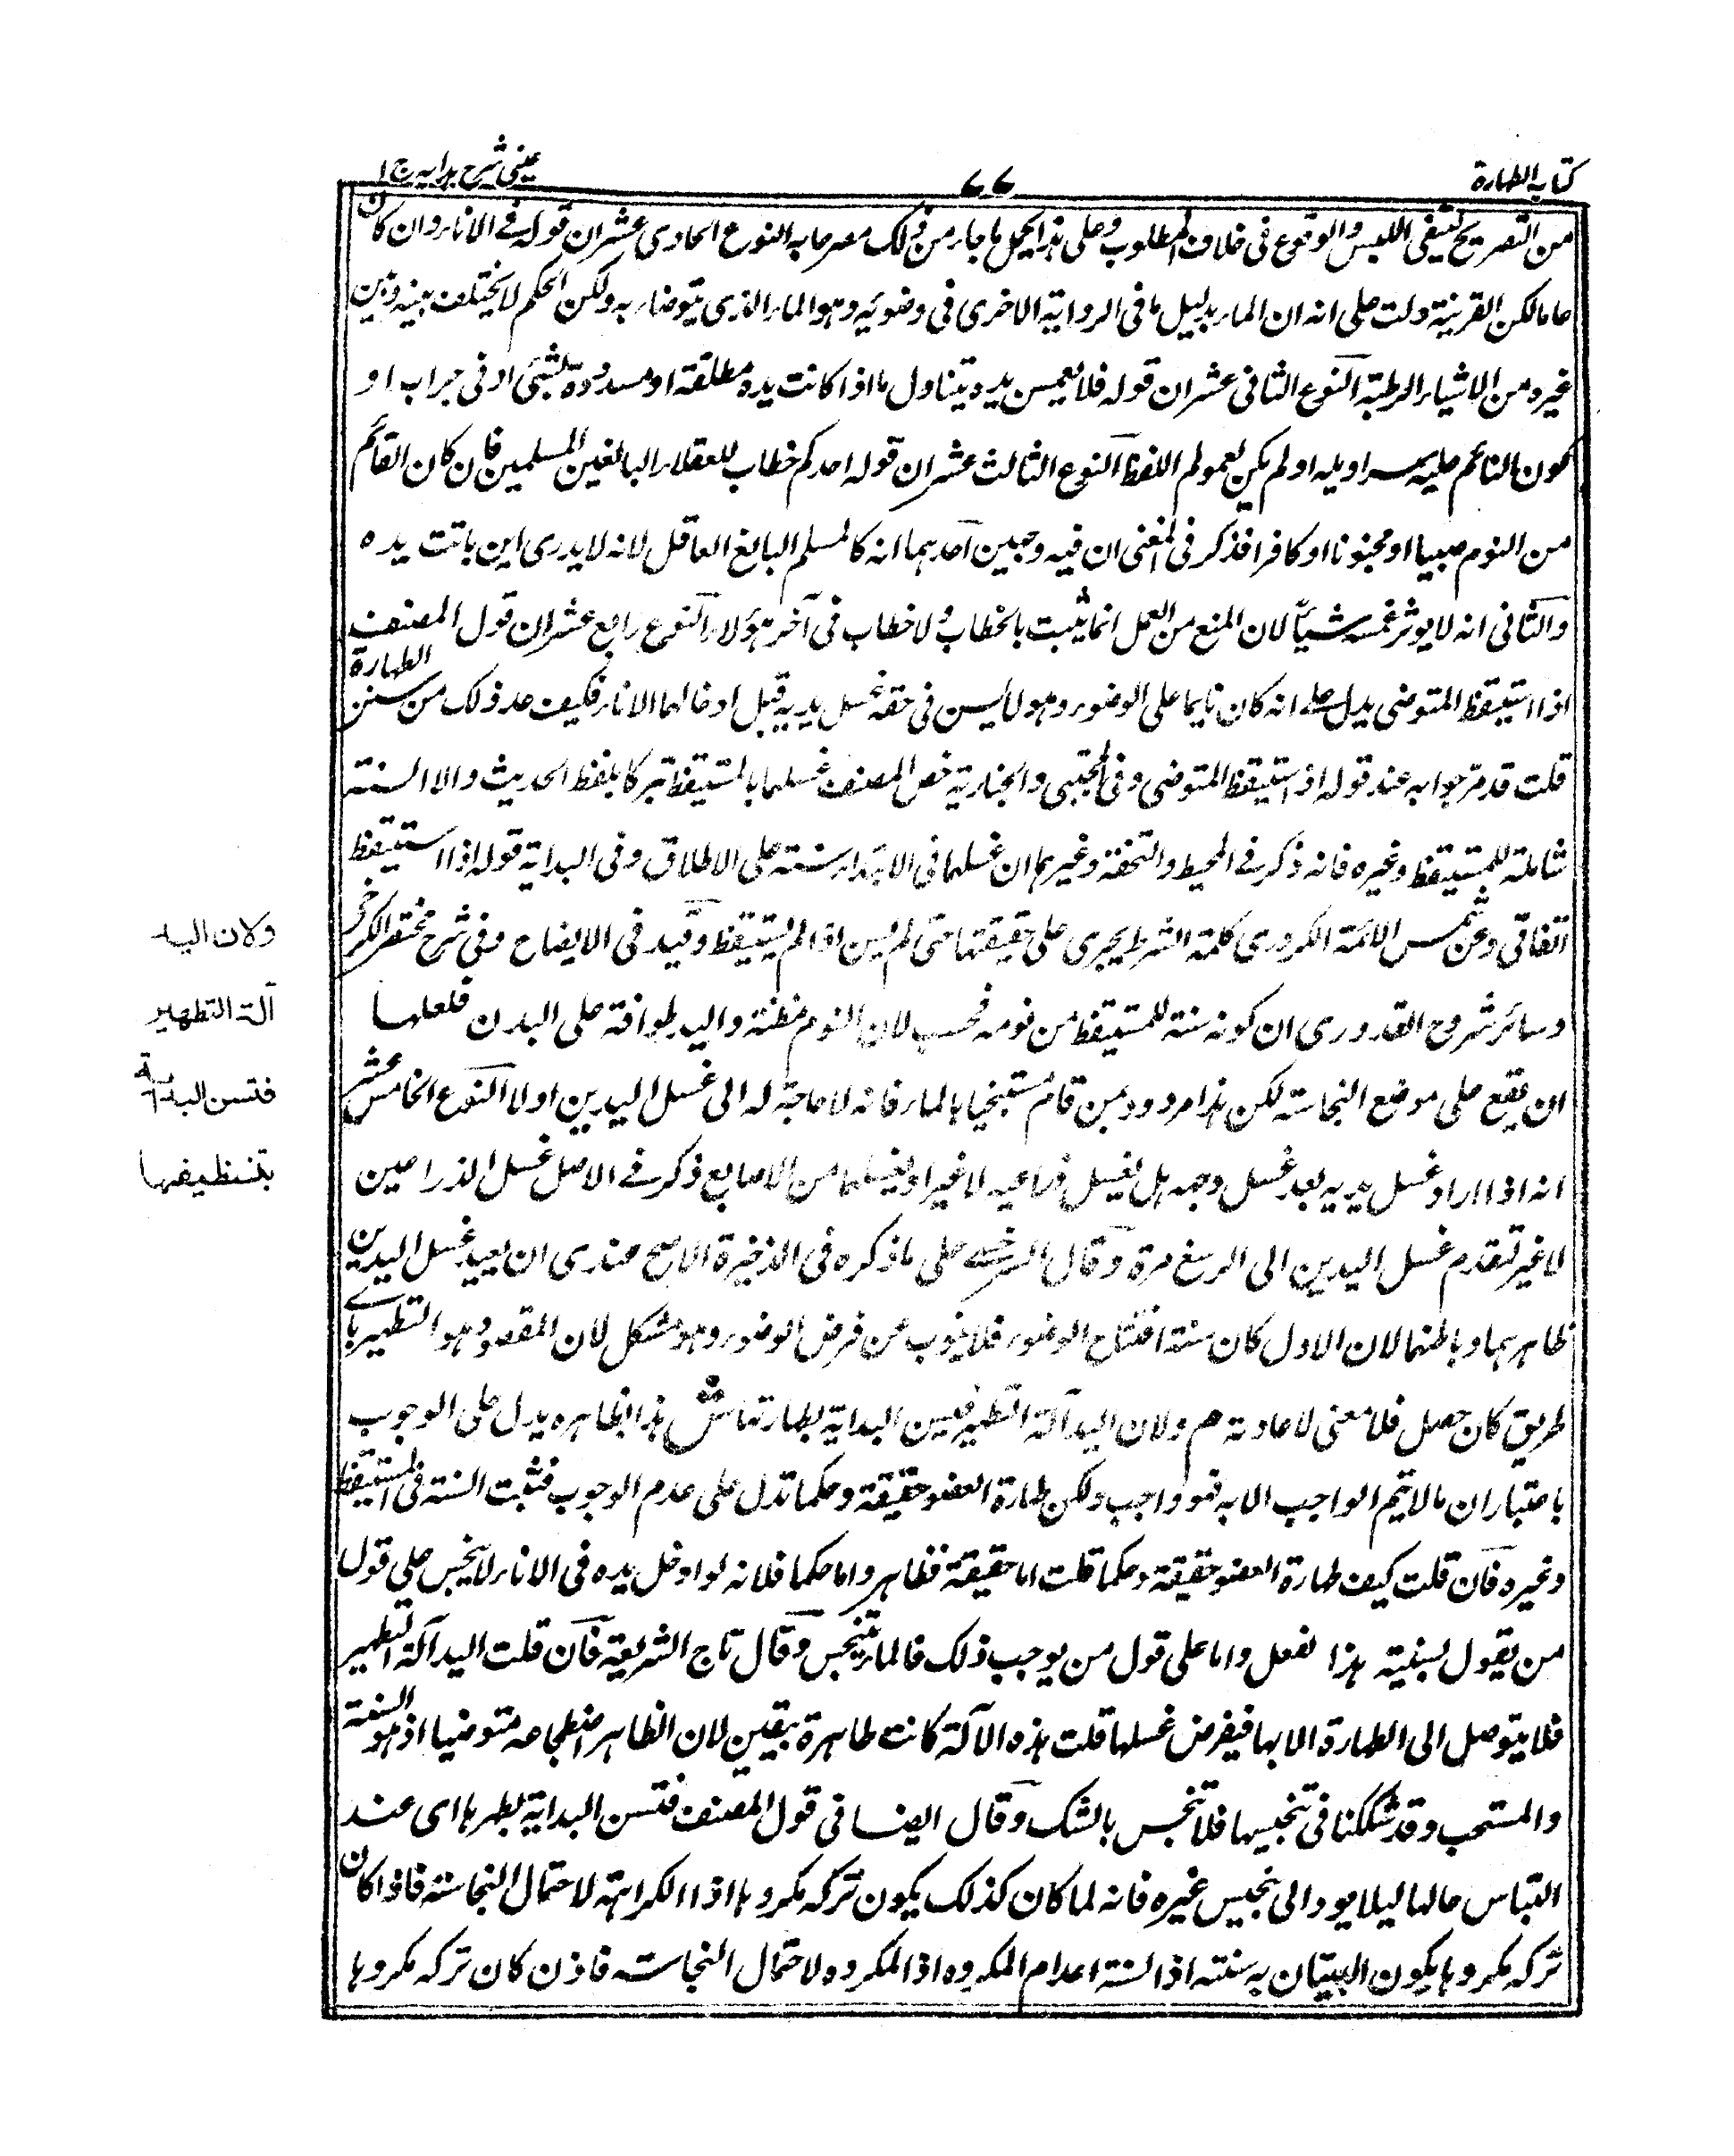 كتاب الطهارة
٧٧
عينى شرح هدايه ج ١
من التصريح لينتفى اللبس والوقوع فى خلاف المطلوب وعلى هذا يحمل ما جاء من ذلك مصرحا به النوع الحادى عشر ان قوله فى الاناء وان كان
عاما لكن القرينة دلت على انه اناء الماء بدليل ما فى الرواية الاخرى فى وضوئه وهو الماء الذى يتوضأ به ولكن الحكم لا يختلف بينه وبين
غيره من الاشياء الرطبة النوع الثانى عشر ان قوله فلا يغمس يده يتناول ما اذا كانت يده مطلقة او مسدودة بشئ او فى جراب او
كون النائم عليه سراويله او لم يكن لعموم اللفظ النوع الثالث عشر ان قوله احدكم خطاب للعقلاء البالغين المسلمين فان كان القائم
من النوم صبيا او مجنونا او كافرا فذكر فى المغنى ان فيه وجهين احدهما انه كالمسلم البالغ العاقل لانه لا يدرى اين باتت يده
والثانى انه لا يوثر غمسه شيئا لان المنع من العمل انما يثبت بالخطاب ولا خطاب فى آخر هؤلاء النوع رابع عشر ان قول المصنف
اذا استيقظ المتوضى يدل على انه كان نايما على الوضوء وهو لا يسن فى حقه غسل يديه قبل ادخالهما الاناء فكيف عد ذلك من سنن الطهارة
قلت قد مر جوابه عند قوله اذا استيقظ المتوضى وفى المجتبى والخبازية خص المصنف غسلهما بالمستيقظ تبركا بلفظ الحديث والا السنة
شاملة للمستيقظ وغيره فانه ذكر فى المحيط والتحفة وغيرهما ان غسلهما فى الابتداء سنة على الاطلاق وفى البداية قوله اذا استيقظ
اتفاقى وعن شمس الائمة الكردرى كلمة الشرط يجرى على حقيقتها حتى لم يسن اذا لم يستيقظ وقيد فى الايضاح وفى شرح مختصر الكرخى
وسائر شروح القدورى ان كونه سنة للمستيقظ من نومه فحسب لان النوم مظنة واليد طوافة على البدن فلعلها
ان يقع على موضع النجاسة لكن هذا مردود بمن قام مستنجيا بالماء فانه لا حاجة له الى غسل اليدين اولا النوع الخامس عشر
انه اذا اراد غسل يديه بعد غسل وجهه هل يغسل ذراعيه لا غير او يغسلهما من الاصابع ذكر فى الاصل غسل الذراعين
لا غير لتقدم غسل اليدين الى الرسغ مرة وقال السرخسى على ما ذكره فى الذخيرة الاصح عندى ان يعيد غسل اليدين
ظاهرهما وباطنهما لان الاول كان سنة افتتاح الوضوء فلا ينوب عن فرض الوضوء وهو مشكل لان المقصود هو التطهير باى
طريق كان حصل فلا معنى لاعادته م ولان اليد آلة التطهير فيسن البداية بطهارتها ش هذا بظاهره يدل على الوجوب
باعتبار ان ما لا يتم الواجب الا به فهو واجب ولكن طهارة العضو حقيقة وحكما تدل على عدم الوجوب فثبت السنة فى المستيقظ
وغيره فان قلت كيف طهارة العضو حقيقة وحكما قلت اما حقيقة فظاهر واما حكما فلانه لو ادخل يده فى الاناء لا ينجس على قول
من يقول بسنية هذا الفعل واما على قول من يوجب ذلك فالماء يتنجس وقال تاج الشريعة فان قلت اليد آلة التطهير
فلا يتوصل الى الطهارة الا بها فيفرض غسلها قلت هذه الآلة كانت طاهرة بيقين لان الظاهر اضطجاعه متوضيا اذ هو السنة
والمستحب وقد شككنا فى تنجيسها فلا تنجس بالشك وقال ايضا فى قول المصنف فتسن البداية بطهرها اى عند
التباس حالها ليلا يود الى تنجيس غيره فانه لما كان كذلك يكون تركه مكروها اذا الكراهة لاحتمال النجاسة فاذا كان
تركه مكروها يكون البيتان به سنته اذ السنة اعدام المكروه اذ المكروه لاحتمال النجاسة فاذن كان تركه مكروها
ولان اليد
آلة التطهير
فتسن البداية
بتنظيفها